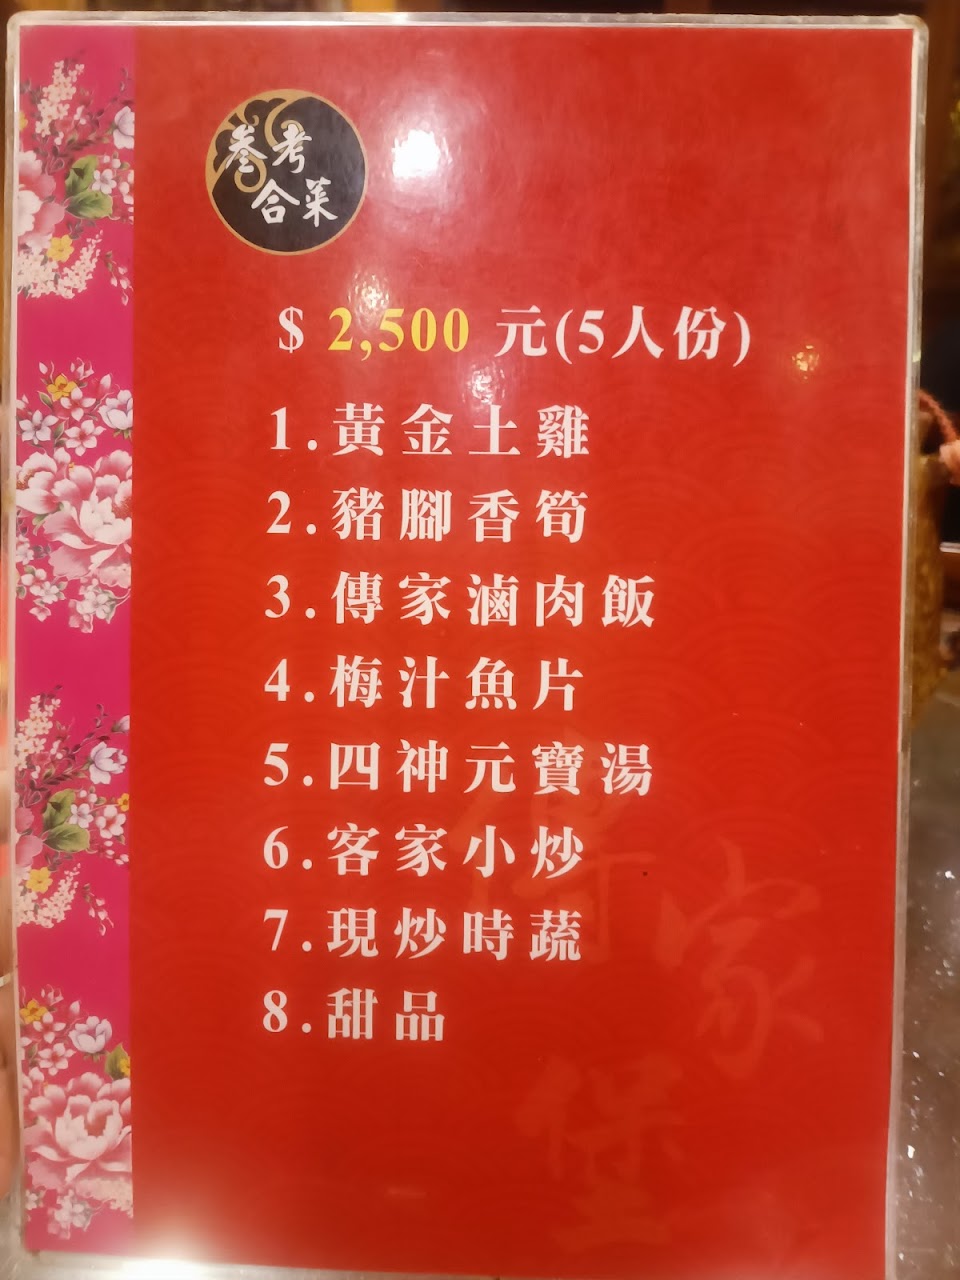 叁考
合菜
$ 2,500 元(5人份)
1.黃金土雞
2.豬腳香筍
3.傳家滷肉飯
4.梅汁魚片
5.四神元寶湯
6.客家小炒
7.現炒時蔬
8.甜品
傳
家
堡